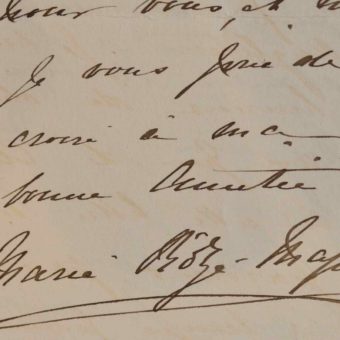 pour vous, et
Je vous prie de
croire à ma
bonne Amitié
Marie Rôze-Map